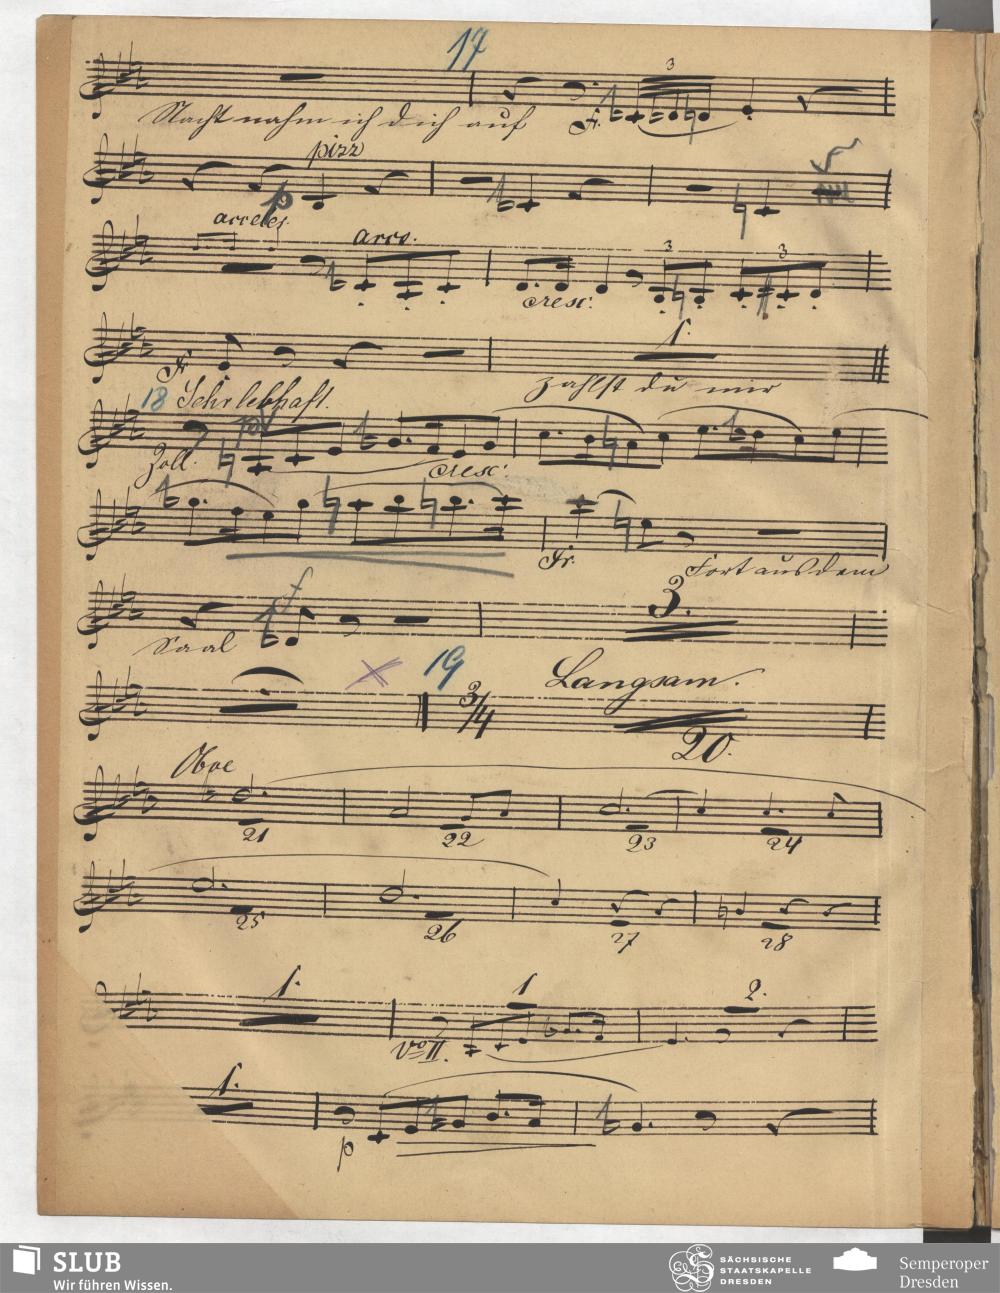 17
3
Nacht nahm ich dich auf
pizz
p
acceler.
arco.
3 3
cresc:
1.
zahlst du mir
18 Sehr lebhaft.
Zoll.
cresc:
Fort aus dem
f
3.
Saal
19
Langsam.
3/4
20.
Oboe
21 22 23 24
25 26 27 28
1. 1 2.
1.
p
SLUB
Wir führen Wissen.
SÄCHSISCHE
STAATSKAPELLE
DRESDEN
Semperoper
Dresden